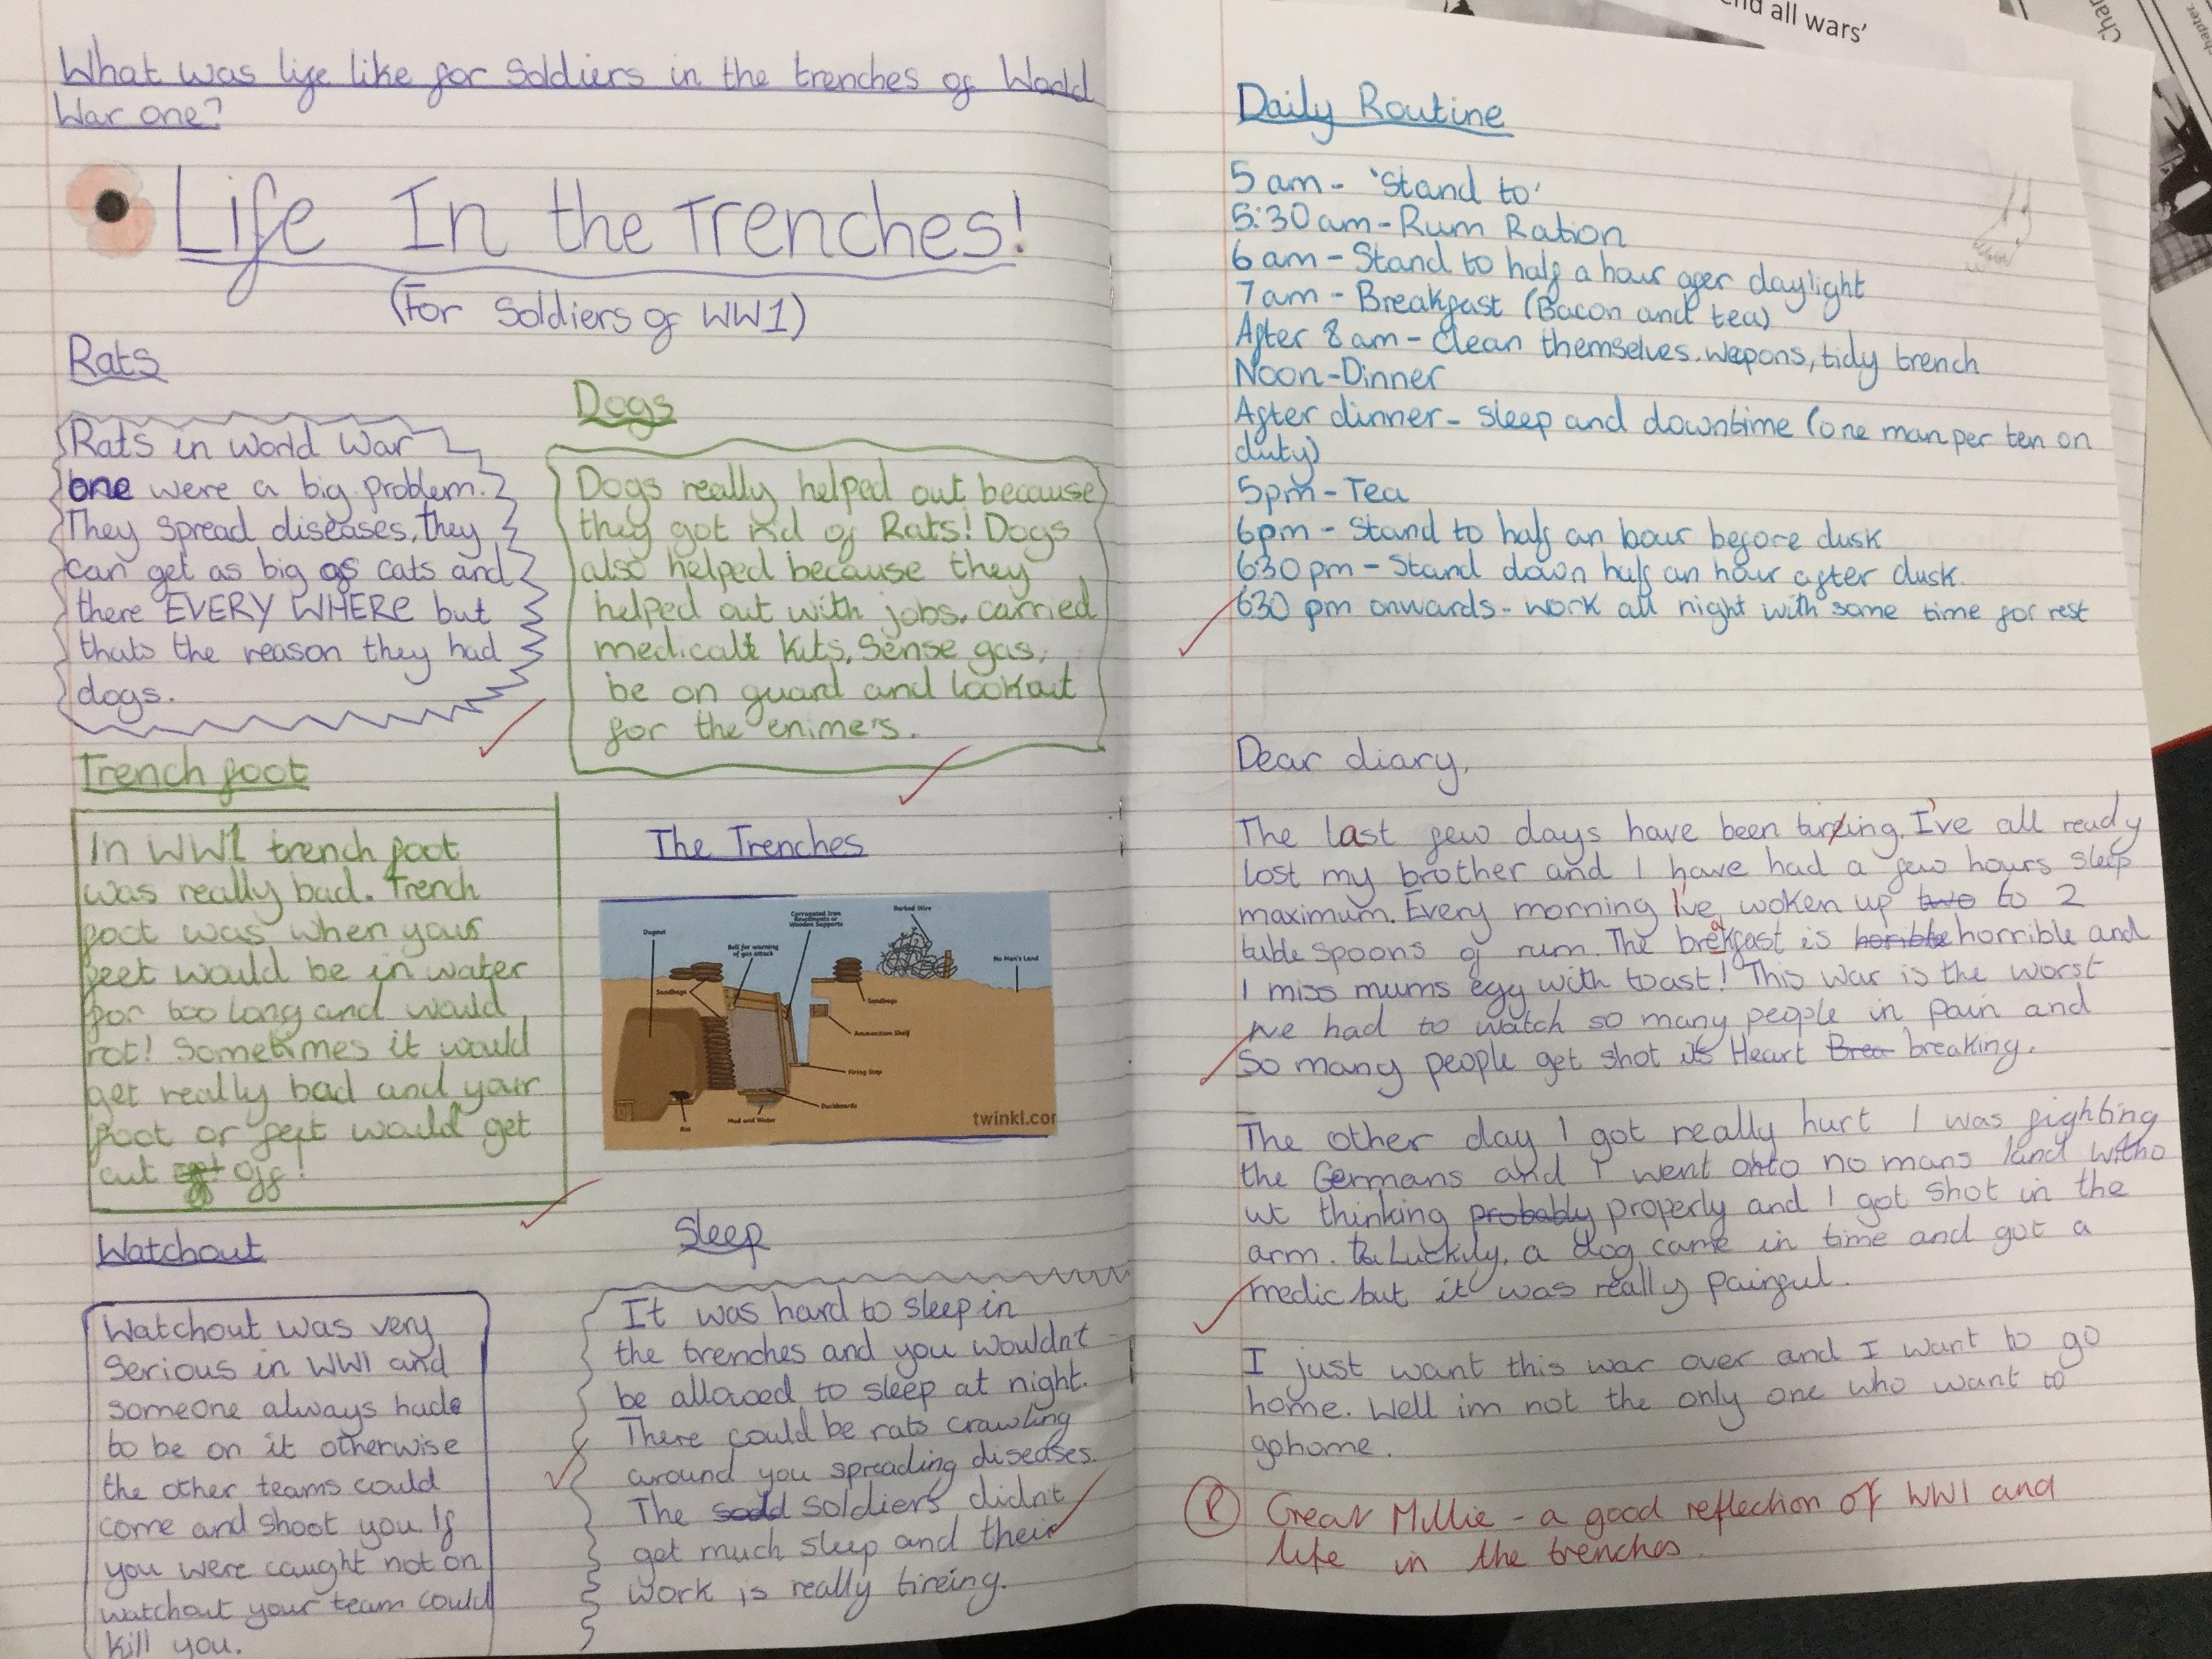 What was life like for Soldiers in the trenches of World
War one?
Life In the Trenches!
(For Soldiers of WW1)
Rats
Rats in World War
one were a big problem.
They spread diseases, they
can get as big as cats and
there EVERY WHERE but
thats the reason they had
dogs.
Dogs
Dogs really helped out because
they got rid of Rats! Dogs
also helped because they
helped out with jobs. carried
medical kits, Sense gas,
be on guard and lookout
for the enime's.
Trench foot
In WW1 trench foot
was really bad. Trench
foot was when your
feet would be in water
for too long and would
rot! Sometimes it would
get really bad and your
foot or feet would get
cut off!
The Trenches
Dugout
Sandbags
Bell for warning
of gas attack
Corrugated Iron
Revetments or
Wooden Supports
Barbed Wire
No Man's Land
Sandbags
Ammunition Shelf
Firing Step
Duckboards
Mud and Water
Rat
twinkl.com
Watchout
Watchout was very
Serious in WW1 and
someone always had
to be on it otherwise
the other teams could
come and shoot you. If
you were caught not on
watchout your team could
kill you.
Sleep
It was hard to sleep in
the trenches and you wouldn't
be allowed to sleep at night.
There could be rats crawling
around you spreading diseases.
The soldiers didn't
get much sleep and their
work is really tireing.
end all wars'
Chap
chapter
Daily Routine
5am - 'Stand to'
5:30am - Rum Ration
6am - Stand to half a hour ager daylight
7am - Breakfast (Bacon and tea)
After 8am - Clean themselves. wepons, tidy trench
Noon - Dinner
After dinner - sleep and downtime (one man per ten on
duty)
5pm - Tea
6pm - Stand to half an hour before dusk
630pm - Stand down half an hour after dusk.
630 pm onwards - work all night with some time for rest
Dear diary,
The last few days have been tireing. I've all ready
lost my brother and I have had a few hours sleep
maximum. Every morning I've woken up two to 2
table spoons of rum. The breakfast is horible horrible and
I miss mums egg with toast! This war is the worst
I've had to watch so many people in pain and
So many people get shot its Heart Brea breaking.
The other day I got really hurt I was fighting
the Germans and I went onto no mans land witho
ut thinking probably properly and I got shot in the
arm. Luckily, a dog came in time and got a
medic but it was really painful.
I just want this war over and I want to go
home. Well im not the only one who want to
go home.
R Great Millie - a good reflection of WW1 and
life in the trenches.